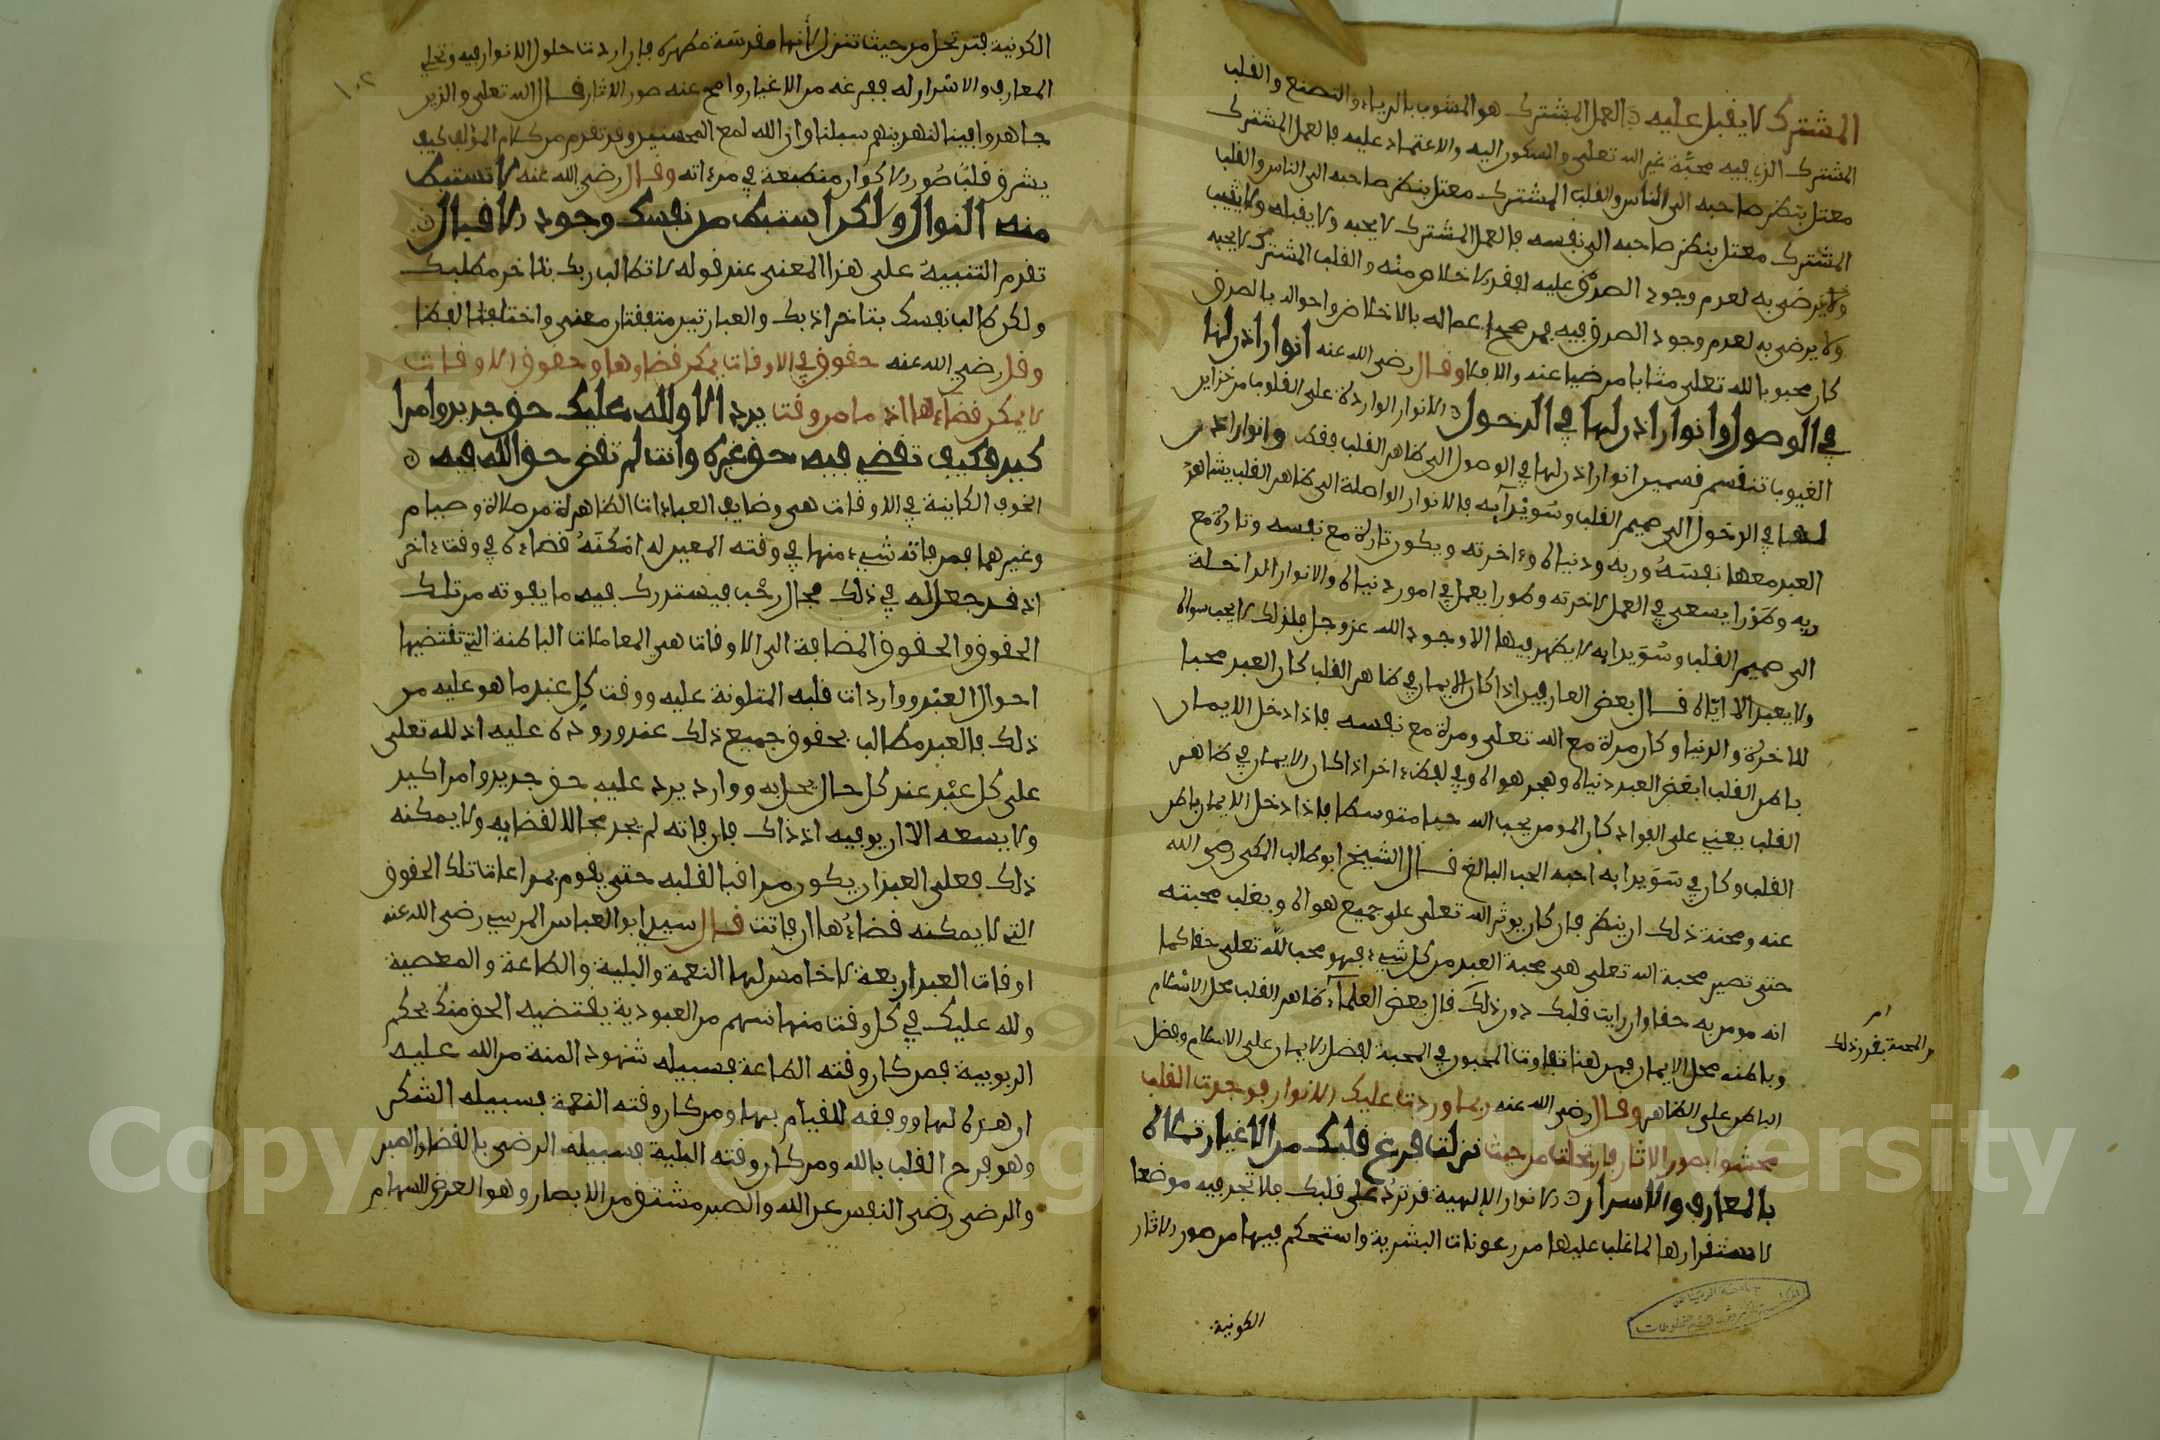 المشترك لا يقبل عليه العمل المشترك هو المشوب بالرياء والتصنع والقلب
المشترك الذي فيه محبة غير الله تعلى والسكون اليه والاعتماد عليه فالعمل المشترك
معتل بنظر صاحبه الى الناس والقلب المشترك معتل بنظر صاحبه الى الناس والقلب
المشترك معتل بنظر صاحبه الى نفسه فالعمل المشترك لا يحبه ولا يقبله ولا يثيب
ولا يرضى به لعدم وجود الصدق عليه لفقد الاخلاص منه والقلب المشترك لا يحبه
ولا يرضى به لعدم وجود الصدق فيه فمن صحح اعماله بالاخلاص واحواله بالصدق
كان محبوبا لله تعلى مثابا مرضيا عنه والا فلا وقال رضي الله عنه انوار اذن لها
في الوصول وانوار اذن لها في الدخول الانوار الواردة على القلوب من خزاين
الغيوب تنقسم قسمين انوار اذن لها في الوصول الى ظاهر القلب فقط وانوار اذن
لها في الدخول الى صميم القلب وسويدآيه فالانوار الواصلة الى ظاهر القلب يشاهد
العبد معها نفسه وربه ودنياه وءاخرته ويكون تارة مع نفسه وتارة مع
ربه وطورا يسعى في العمل لاخرته وطورا يعمل في امور دنياه والانوار الداخلة
الى صميم القلب وسويدايه لا يظهر فيها الا وجود الله عز وجل فلذلك لا يحب سواه
ولا يعبد الا اياه قال بعض العارفين اذا كان الايمان في ظاهر القلب كان العبد محبا
للاخرة والدنيا وكان مرة مع الله تعلى ومرة مع نفسه فاذا دخل الايمان
باطن القلب ابغض العبد دنياه وهجر هواه وفي لفظ ءاخر اذا كان الايمان في ظاهر
القلب يعني على الفواد كان المومن يحب الله حبا متوسطا فاذا دخل الايمان باطن
القلب وكان في سويدايه احبه الحب البالغ قال الشيخ ابو طالب المكي رضي الله
عنه ومحنة ذلك ان ينظر فان كان يوثر الله تعلى على جميع هواه ويغلب محبته
حتى تصير محبة الله تعلى هي محبة العبد من كل شيء فهو محب لله تعلى حقا كما
انه مومن به حقا وان رايت قلبك دون ذلك قال بعض العلماء ظاهر القلب محل الاسلام
من المحبة بقدر ذلك
وباطنه محل الايمان فمن هنا تفاوت المحبون في المحبة لفضل الايمان على الاسلام وفضل
الباطن على الظاهر وقال رضي الله عنه ربما وردت عليك الانوار فوجدت القلب
محشوا بصور الاثار فارتحلت من حيث نزلت فرغ قلبك من الاغيار تملاه
بالمعارف والاسرار الانوار الالهية قد ترد على قلبك فلا تجد فيه موضعا
لاستقرارها لما غلب عليها من رعونات البشرية واستحكم فيها من صور الاثار
الكونية
١٠٢
الكونية فترتحل من حيث تنزل لانها مقدسة مطهرة فان اردت حلول الانوار فيه وتجلي
المعارف والاسرار له ففرغه من الاغيار وامح عنه صور الاثار قال الله تعلى والذين
جاهدوا فينا لنهدينهم سبلنا وان الله لمع المحسنين وقد تقدم من كلام المؤلف كيف
يشرق قلب صور الاكوان منطبعة في مرءاته وقال رضي الله عنه لا تستبط
منه النوال ولكن استبط من نفسك وجود الاقبال
تقدم التنبيه على هذا المعنى عند قوله لا تطالب ربك بتاخر مطلبك
ولكن طالب نفسك بتاخر ادبك والعبارتين متفقتان معنى واختلفتا لفظا
وقال رضي الله عنه حقوق في الاوقات يمكن قضاوها وحقوق الاوقات
لا يمكن قضاءها اذ ما من وقت يرد الا ولله عليك حق جديد وامر
كيد فكيف تقضي فيه حق غيره وانت لم تقض حق الله فيه
الحقوق الكاينة في الاوقات هي وضايف العبادات الظاهرة من صلاة وصيام
وغيرهما فمن فاته شيء منها في وقته المعين له امكنه قضاءه في وقت ءاخر
اذ قد جعل له في ذلك مجال رحب فيستدرك فيه ما يفوته من تلك
الحقوق والحقوق المضافة الى الاوقات هي المعاملات الباطنة التي تقتضيها
احوال العبد وواردات قلبه المتلونة عليه ووقت كل عبد ما هو عليه من
ذلك فالعبد مطالب بحقوق جميع ذلك عند وروده عليه اذ لله تعلى
على كل عبد عند كل حال يحل به ووارد يرد عليه حق جديد وامر اكيد
ولا يسعه الا ان يوفيه اذ ذاك فان فاته لم يجد مجالا لقضايه ولا يمكنه
ذلك فعلى العبد ان يكون مراقبا لقلبه حتى يقوم بمراعات تلك الحقوق
التي لا يمكنه قضاءها ان فاتت قال سيدي ابو العباس المرسي رضي الله عنه
اوقات العبد اربعة لا خامس لها النعمة والبلية والطاعة والمعصية
ولله عليك في كل وقت منها سهم من العبودية يقتضيه الحق منك بحكم
الربوبية فمن كان وقته الطاعة فسبيله شهود المنة من الله عليه
ان هداه لها ووفقه للقيام بها ومن كان وقته النعمة فسبيله الشكر
وهو فرح القلب بالله ومن كان وقته البلية فسبيله الرضى بالقضا والصبر
والرضى رضى النفس عن الله والصبر مشتق من الاصبار وهو الغرض للسهام
Copyright © King Saud University